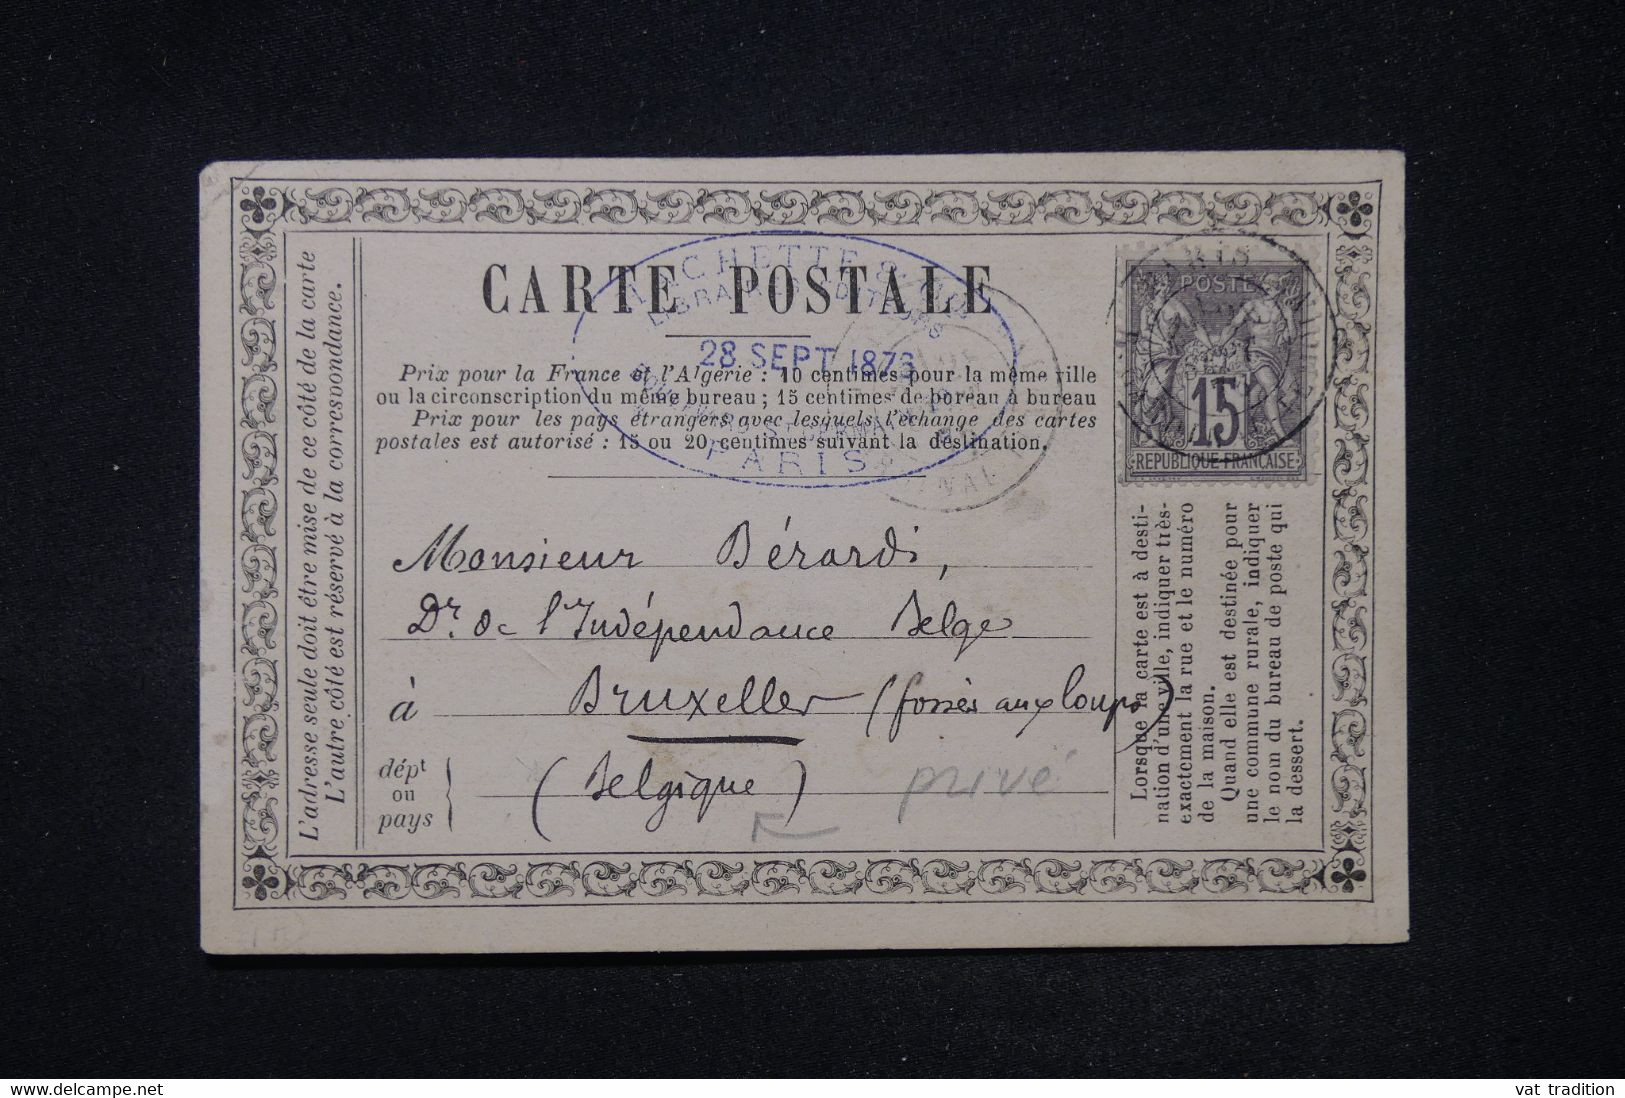 CARTE POSTALE
HACHETTE & CIE
LIBRAIRES ÉDITEURS
28 SEPT 1873
BOULEVARD ST GERMAIN
PARIS
Prix pour la France et l'Algérie : 10 centimes pour la même ville
ou la circonscription du même bureau ; 15 centimes de bureau à bureau
Prix pour les pays étrangers avec lesquels l'échange des cartes
postales est autorisé : 15 ou 20 centimes suivant la destination.
PARIS
POSTE
15
REPUBLIQUE FRANÇAISE
Monsieur Bérardi,
Dr. de l'Indépendance Belge
à Bruxelles (fossés aux loups)
dépt
ou
pays
(Belgique)
privé
L'adresse seule doit être mise de ce côté de la carte
L'autre côté est réservé à la correspondance.
Lorsque la carte est à desti-
nation d'une ville, indiquer très-
exactement la rue et le numéro
de la maison.
Quand elle est destinée pour
une commune rurale, indiquer
le nom du bureau de poste qui
la dessert.
www.delcampe.net
vat tradition